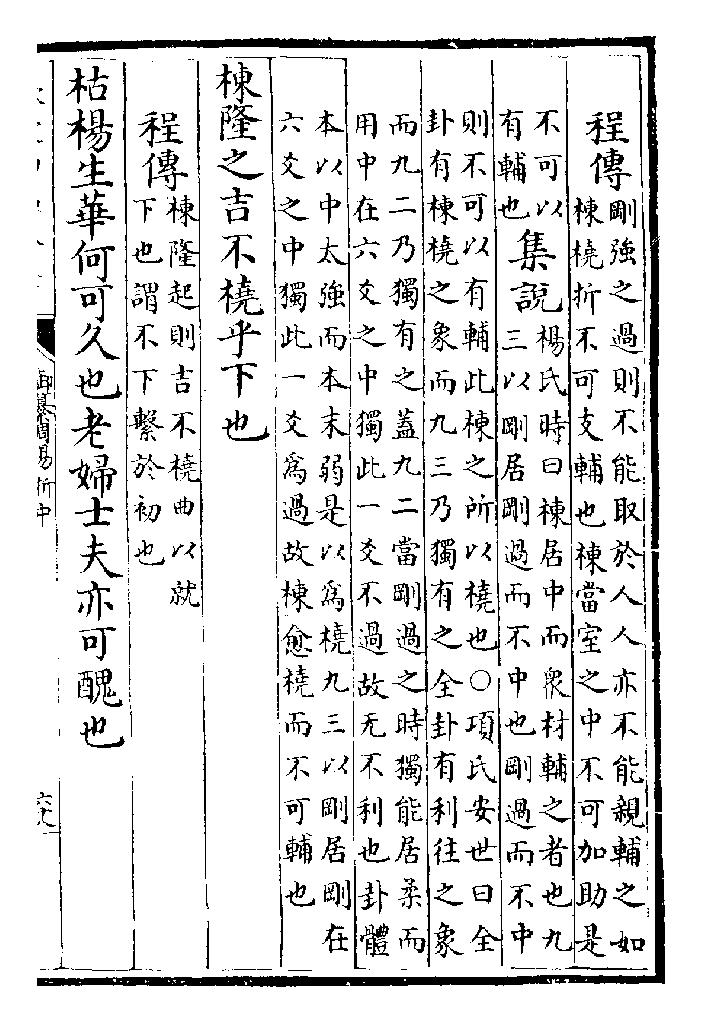 程傳
剛強之過則不能取於人人亦不能親輔之如
棟橈折不可支輔也棟當室之中不可加助是
不可以
有輔也
集說
楊氏時曰棟居中而衆材輔之者也九
三以剛居剛過而不中也剛過而不中
則不可以有輔此棟之所以橈也○項氏安世曰全
卦有棟橈之象而九三乃獨有之全卦有利往之象
而九二乃獨有之蓋九二當剛過之時獨能居柔而
用中在六爻之中獨此一爻不過故无不利也卦體
本以中太強而本末弱是以爲橈九三以剛居剛在
六爻之中獨此一爻爲過故棟愈橈而不可輔也
棟隆之吉不橈乎下也
程傳
棟隆起則吉不橈曲以就
下也謂不下繫於初也
枯楊生華何可久也老婦士夫亦可醜也
御纂周易折中